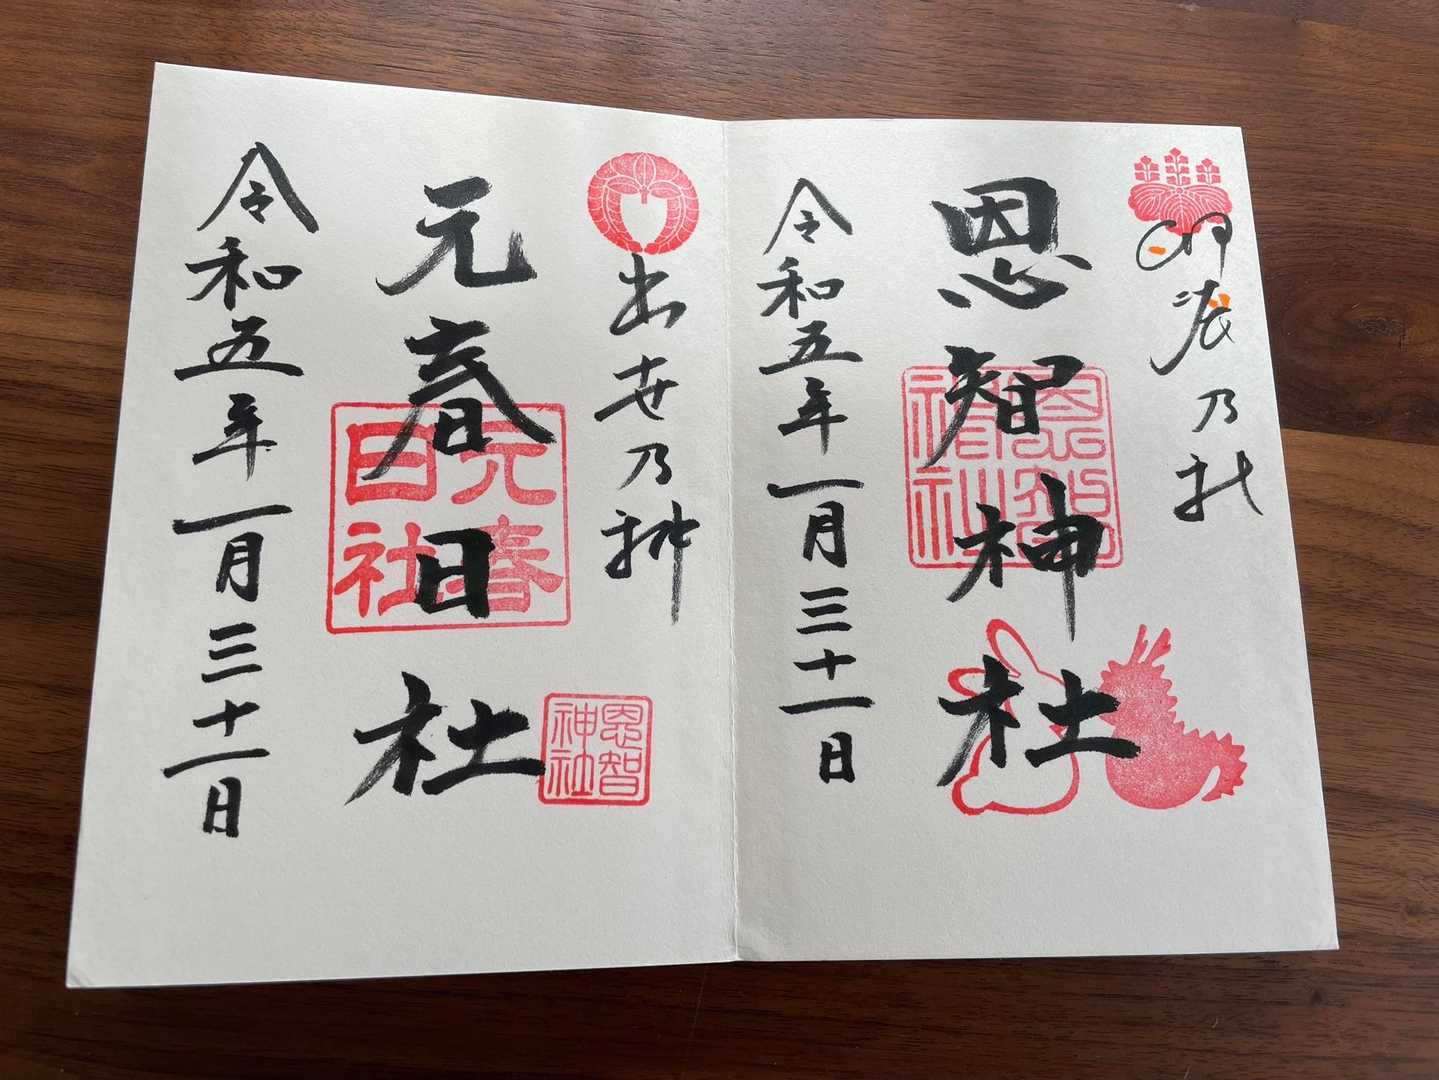 卯辰乃社
恩智神社
恩智
神社
令和五年一月三十一日
出世乃神
元春日社
元春
日社
恩智
神社
令和五年一月三十一日